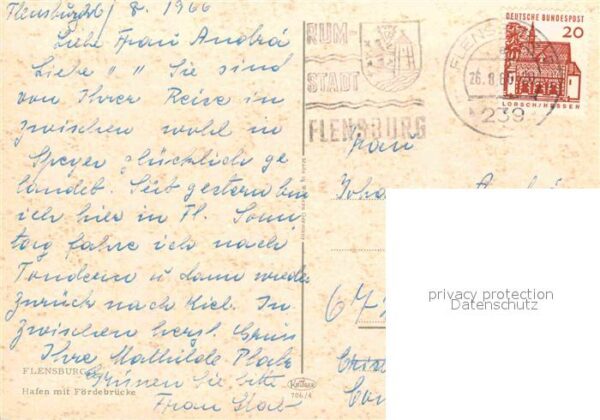 Flensburg / 8. 1966
Liebe Frau André
Liebe " " Sie sind
von Ihrer Reise in
zwischen wohl in
Speyer glücklich ge
landet. Seit gestern bin
ich hier in Fl. Sonn
tag fahre ich nach
Tondern u dann wieder
zurück nach Kiel. In
zwischen herzl. Grüss
Ihre Mathilde
Grüssen Sie bitte
Frau
RUM-
STADT
FLENSBURG
FLENSBURG
26.8.66
239
DEUTSCHE BUNDESPOST
20
LORSCH/HESSEN
Frau
67
privacy protection
Datenschutz
FLENSBURG
Hafen mit Fördebrücke
Krüger
706/4